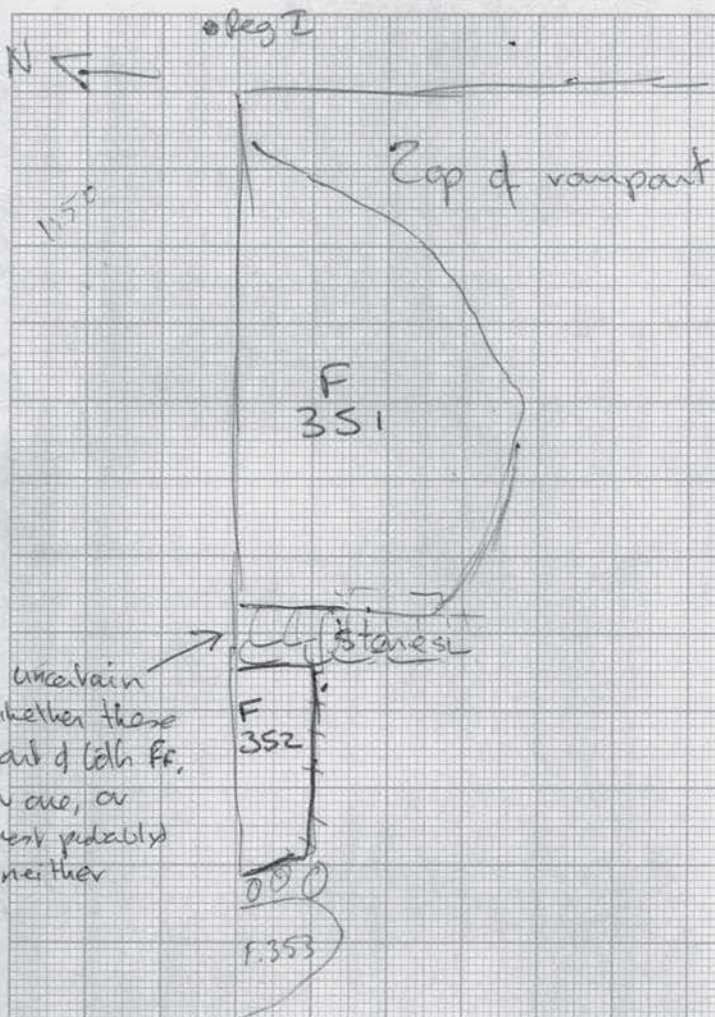 Peg I
N
Top of rampart
F
351
stones
uncertain
whether these
part of both Ff,
or one, or
most probably
neither
F
352
F.353